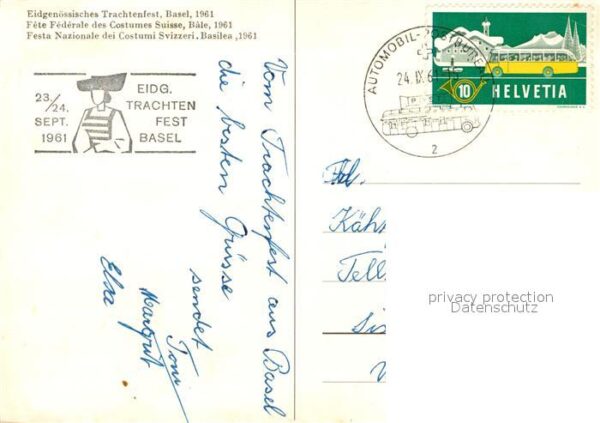 Eidgenössisches Trachtenfest, Basel, 1961
Fête Fédérale des Costumes Suisse, Bâle, 1961
Festa Nazionale dei Costumi Svizzeri, Basilea ,1961
23/24.
SEPT.
1961
EIDG.
TRACHTEN
FEST
BASEL
Vom Trachtenfest aus Basel
die besten Grüsse
sendet Toni
Margrit
Elsa
AUTOMOBIL-POSTBUREAU
24.IX.61
2
10 HELVETIA
Tell
privacy protection
Datenschutz